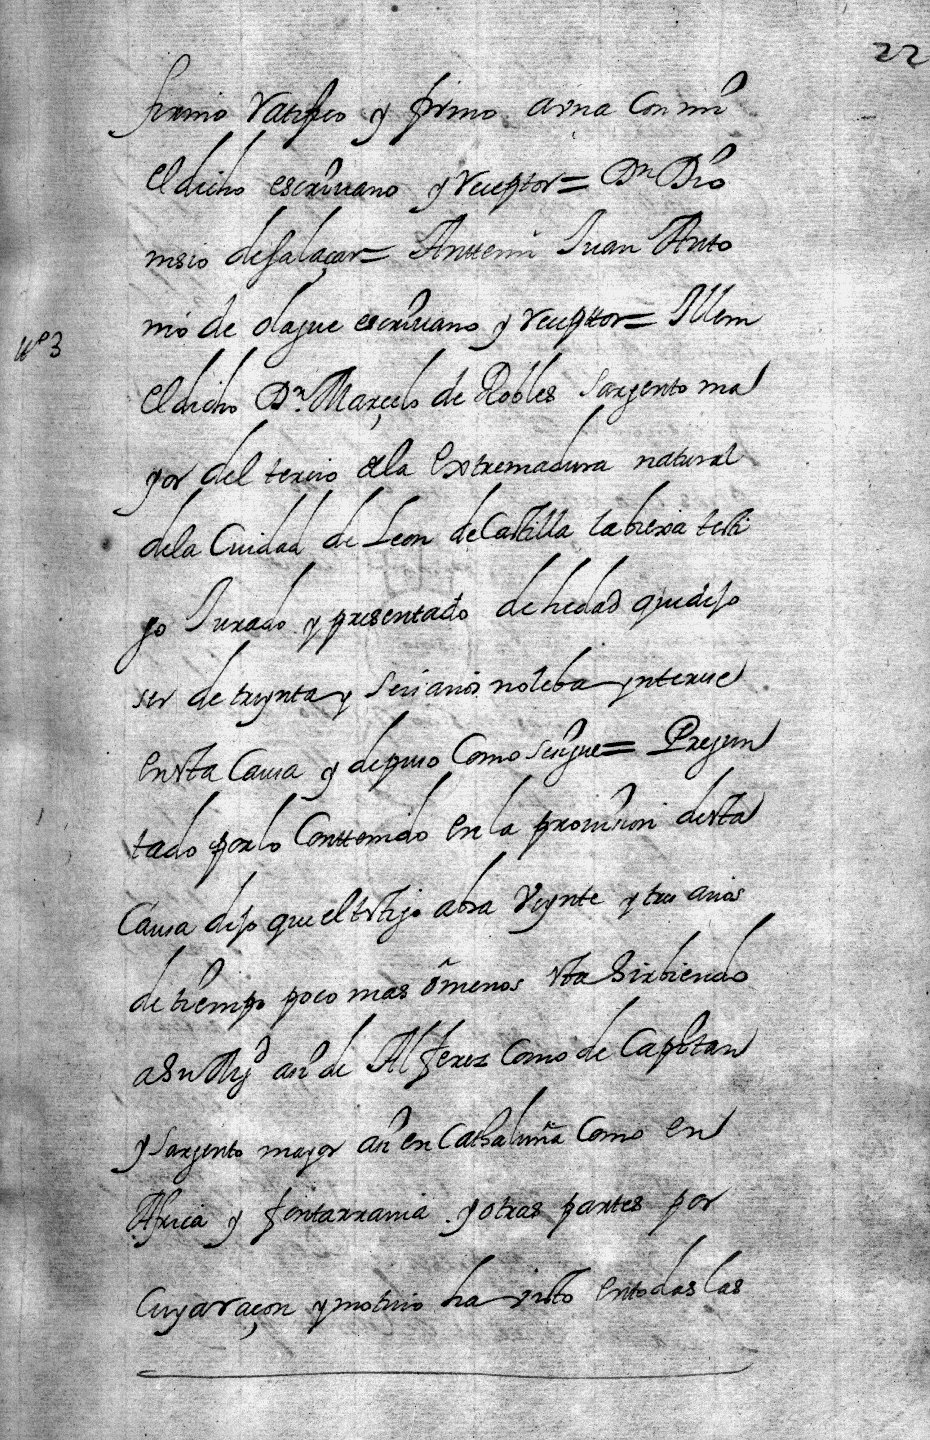 22
firmo Ratifico y firmo asina Con mi
el dicho escriuano y Receptor = Dn Dio
nisio de Salaçar = Anttemi Juan Anto
nio de olague escriuano y Receptor = Ittem
nº 3
el dicho Dn Marçelo de Robles Sargento ma
yor del tercio de la Extremadura natural
de la Ciudad de Leon de Castilla la biexa testi
go Jurado y presentado de hedad que dijo
ser de treynta y seis años no leba ynterue
en esta Causa y depuso Como se sigue = Pregun
tado por lo Conttenido en la prouision desta
Causa dijo que el testigo abra Veynte y tres años
de tiempo poco mas o menos esta Sirbiendo
a Su Mgd asi de Alferez Como de Capitan
y Sargento mayor asi en Cathaluña Como en
Africa y fontarrauia y otras partes por
Cuya raçon y motiuo ha visto en todas las